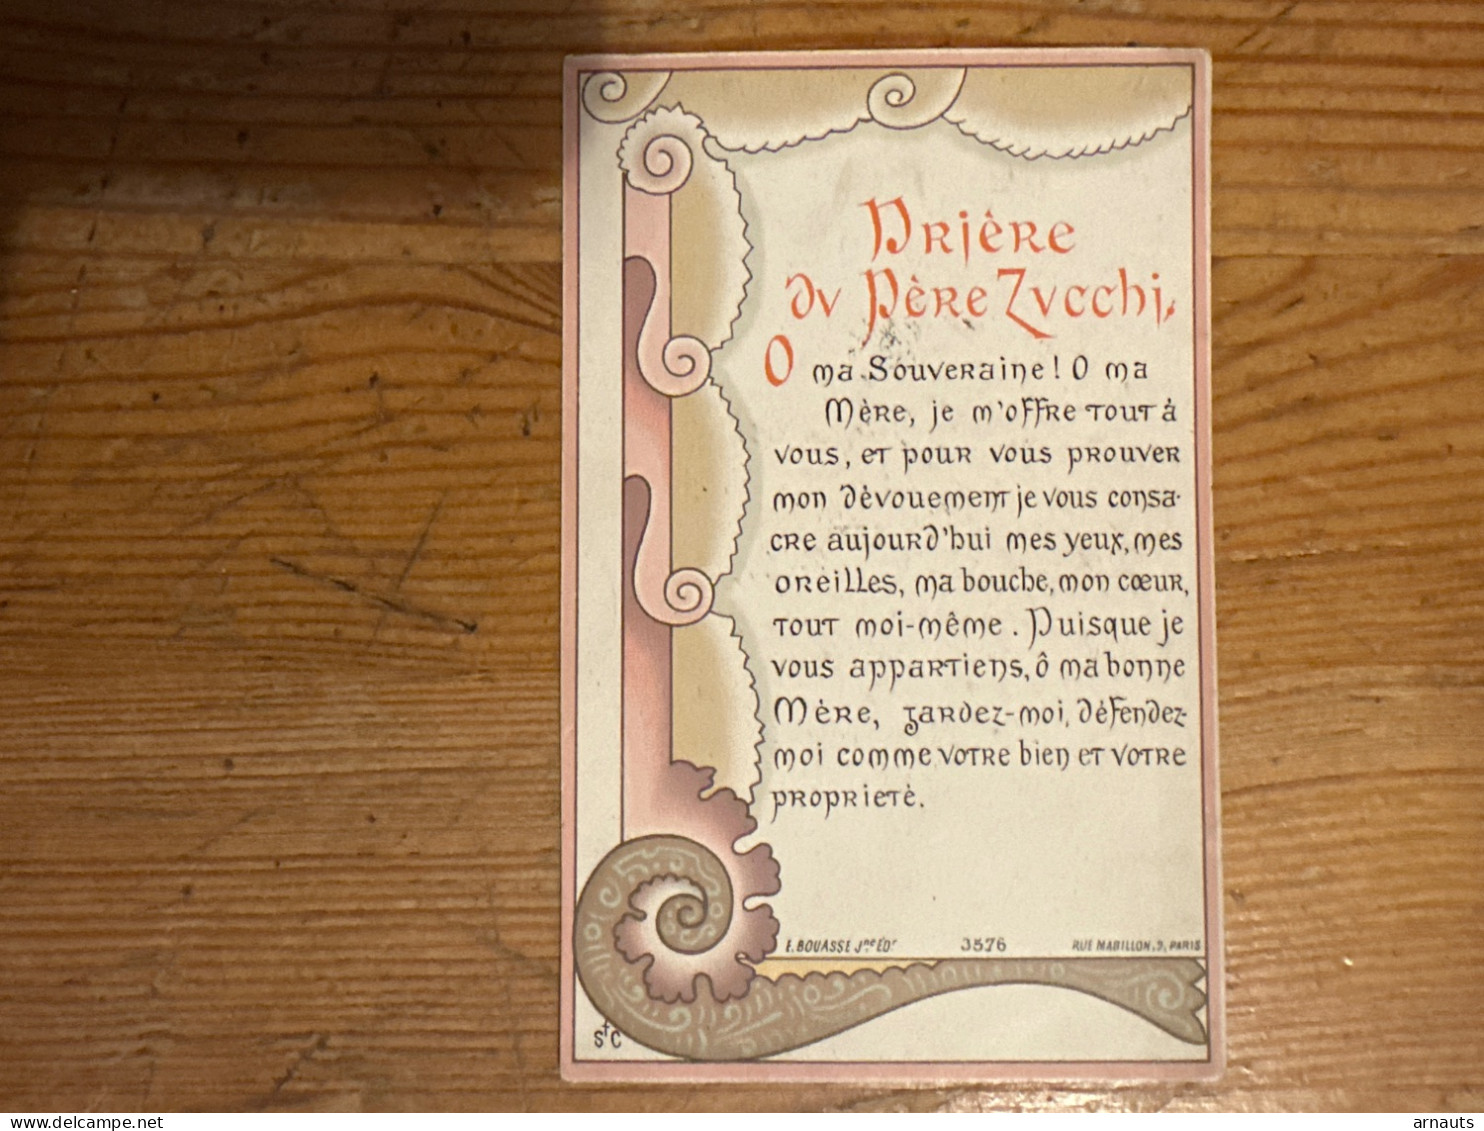 Prière
du Père Zucchi,
O ma Souveraine! O ma
Mère, je m'offre tout à
vous, et pour vous prouver
mon dévouement je vous consa-
cre aujourd'hui mes yeux, mes
oreilles, ma bouche, mon cœur,
tout moi-même. Puisque je
vous appartiens, ô ma bonne
Mère, gardez-moi, défendez-
moi comme votre bien et votre
propriété.
E. BOUASSE Jne ÉDr 3576 RUE MABILLON, 9, PARIS
St C
arnauts